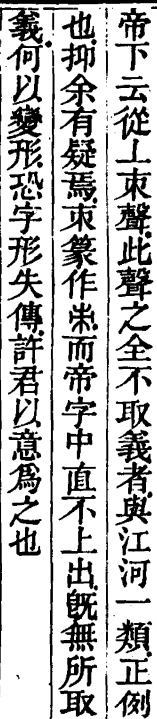 帝下云從丄朿聲此聲之全不取義者與江河一類正例
也抑余有疑焉朿篆作𣎳而帝字中直不上出旣無所取
義何以變形恐字形失傳許君以意爲之也